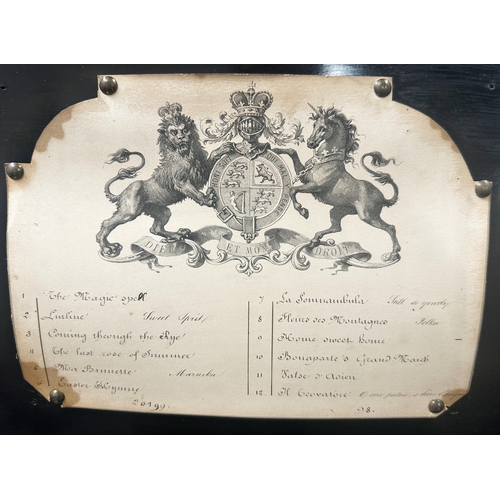 DIEU ET MON DROIT
1 The Magic spell
2 Lurline " Sweet Spirit
3 Coming through the Rye
4 The last rose of Summer
5 Ma Brunette Mazurka
6 Easter Hymne
20190.
7 La Sonnambula Tutt' è
8 Fleurs des Montagnes Polka
9 Home sweet home
10 Bonaparte's Grand March
11 Valse d'Adieu
12 Il Trovatore
98.